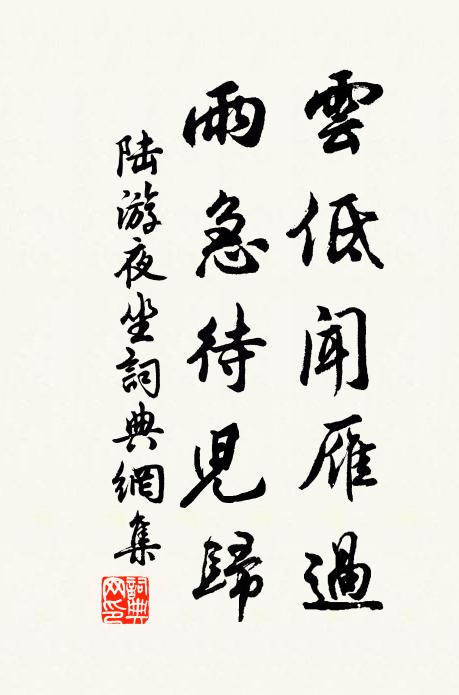 雲低闻雁過
雨急待児歸
陆游夜坐詞典網集
詞典网印